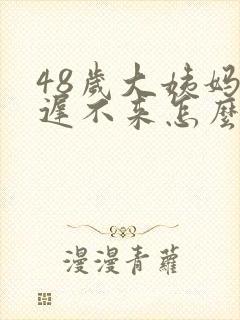 48歲大姨妈
遲不来怎麼
漫漫青蘿